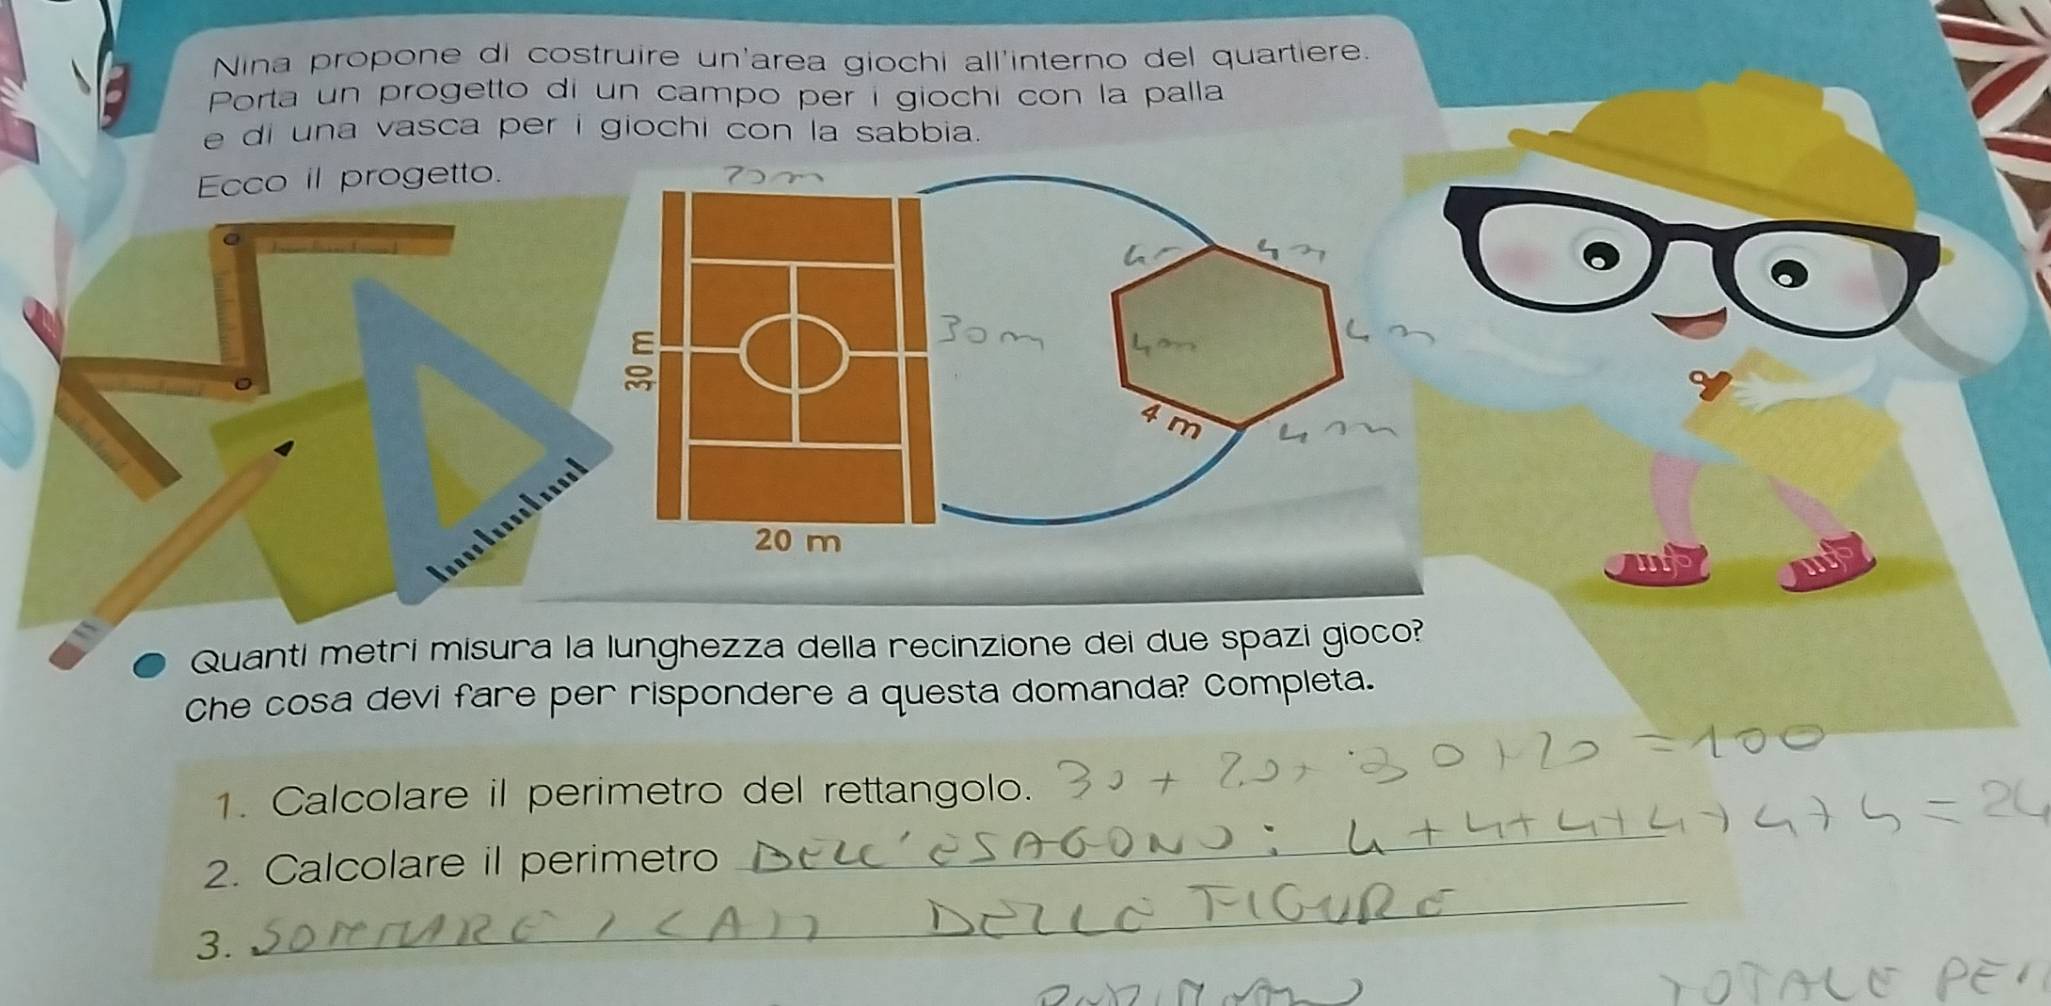 Nina propone di costruire un'area giochi all'interno del quartiere.
Porta un progetto di un campo per i giochi con la palla
e di una vasca per i giochi con la sabbia.
Ecco il progetto.
20 m
4 m 4 m
30 m 30 m 4 m 4 m
4 m 4 m
20 m
Quanti metri misura la lunghezza della recinzione dei due spazi gioco?
Che cosa devi fare per rispondere a questa domanda? Completa.
1. Calcolare il perimetro del rettangolo. 30 + 20 + 30 + 20 = 100
2. Calcolare il perimetro DELL'ESAGONO: 4 + 4 + 4 + 4 + 4 + 4 = 24
3. SOMMARE I LATI DELLE FIGURE
TOTALE